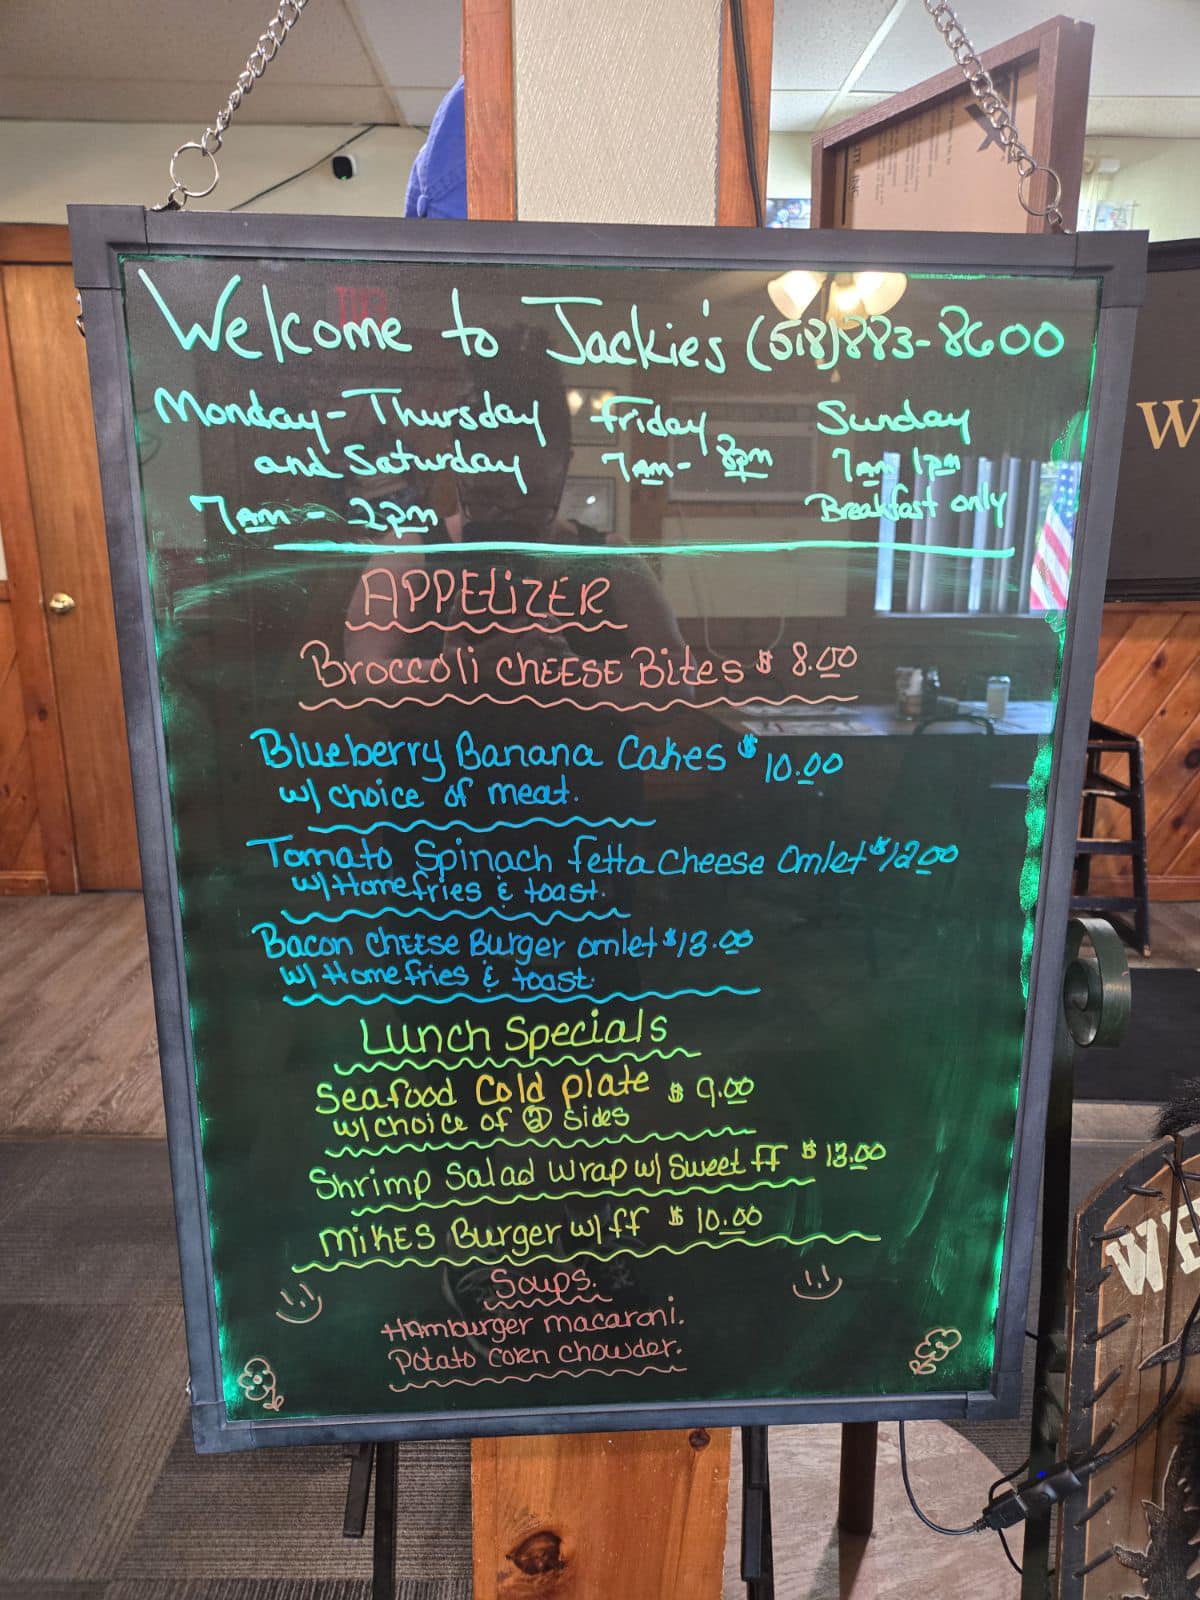 Welcome to Jackie's (518)883-8600
Monday-Thursday Friday Sunday
and Saturday 7AM- 8pm 7am 1pm
7AM - 2pm Breakfast only
APPETIZER
Broccoli CHEESE Bites $ 8.00
Blueberry Banana Cakes $ 10.00
w/ choice of meat.
Tomato Spinach fetta Cheese Omlet $12.00
w/ Homefries & toast.
Bacon CHEESE Burger omlet $13.00
w/ Homefries & toast.
Lunch Specials
Seafood Cold plate $ 9.00
w/ choice of 2 Sides
Shrimp Salad wrap w/ Sweet ff $ 13.00
MIKES Burger w/ ff $ 10.00
Soups.
Hamburger macaroni.
Potato corn chowder.
W
WE